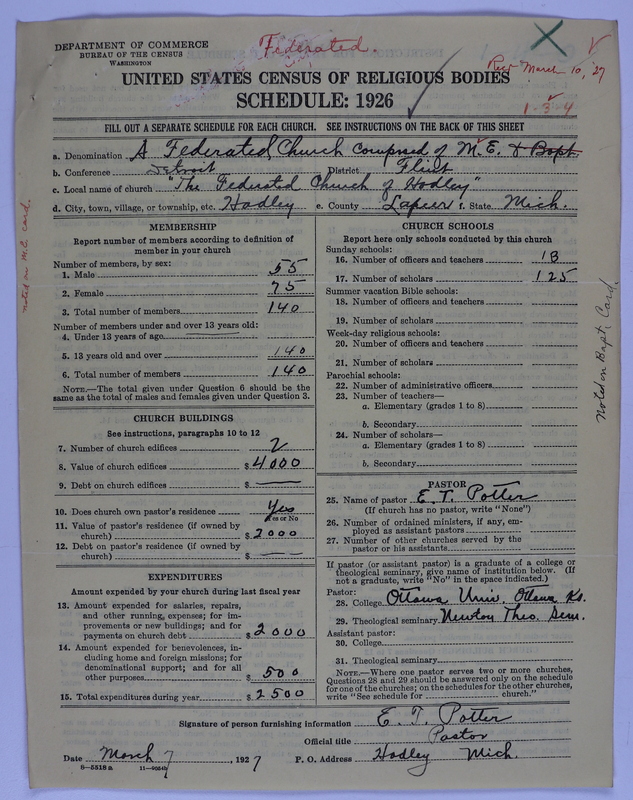 DEPARTMENT OF COMMERCE
BUREAU OF THE CENSUS
WASHINGTON
Federated.
Rec'd March 10, '27
UNITED STATES CENSUS OF RELIGIOUS BODIES
SCHEDULE: 1926
1-3-4
FILL OUT A SEPARATE SCHEDULE FOR EACH CHURCH. SEE INSTRUCTIONS ON THE BACK OF THIS SHEET
a. Denomination A Federated Church composed of M.E. & Bapt.
b. Conference Detroit District Flint
c. Local name of church "The Federated Church of Hadley"
d. City, town, village, or township, etc. Hadley e. County Lapeer f. State Mich.
MEMBERSHIP
Report number of members according to definition of
member in your church
Number of members, by sex:
1. Male 55
2. Female 75
3. Total number of members 140
Number of members under and over 13 years old:
4. Under 13 years of age
5. 13 years old and over 140
6. Total number of members 140
NOTE.—The total given under Question 6 should be
same as the total of males and females given under Question 3.
CHURCH BUILDINGS
See instructions, paragraphs 10 to 12
7. Number of church edifices 2
8. Value of church edifices $4000
9. Debt on church edifices $ —
10. Does church own pastor's residence Yes
Yes or No
11. Value of pastor's residence (if owned by
church) $2000
12. Debt on pastor's residence (if owned by
church) $ —
EXPENDITURES
Amount expended by your church during last fiscal year
13. Amount expended for salaries, repairs,
and other running expenses; for im-
provements or new buildings; and for
payments on church debt $2000
14. Amount expended for benevolences, in-
cluding home and foreign missions; for
denominational support; and for all
other purposes $500
15. Total expenditures during year $2500
CHURCH SCHOOLS
Report here only schools conducted by this church
Sunday schools:
16. Number of officers and teachers 18
17. Number of scholars 125
Summer vacation Bible schools:
18. Number of officers and teachers
19. Number of scholars
Week-day religious schools:
20. Number of officers and teachers
21. Number of scholars
Parochial schools:
22. Number of administrative officers
23. Number of teachers—
a. Elementary (grades 1 to 8)
b. Secondary
24. Number of scholars—
a. Elementary (grades 1 to 8)
b. Secondary
PASTOR
25. Name of pastor E. T. Potter
(If church has no pastor, write "None")
26. Number of ordained ministers, if any, em-
ployed as assistant pastors
27. Number of other churches served by the
pastor or his assistants
If pastor (or assistant pastor) is a graduate of a college or
theological seminary, give name of institution below. (If
not a graduate, write "No" in the space indicated.)
Pastor:
28. College Ottawa Univ. Ottawa Ks.
29. Theological seminary Newton Theo. Sem.
Assistant pastor:
30. College
31. Theological seminary
NOTE.—Where one pastor serves two or more churches,
Questions 28 and 29 should be answered only on the schedule
for one of the churches; on the schedules for the other churches,
write "See schedule for ........ church."
Signature of person furnishing information E. T. Potter
Official title Pastor
Date March 7, 1927 P. O. Address Hadley Mich.
8—5518 a
noted on M.E. card.
Noted on Bapt. Card.